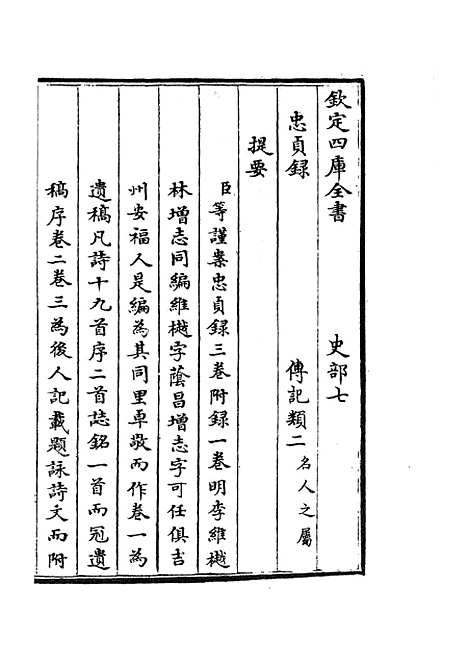 欽定四庫全書　史部七
忠貞録　傳記類二名人之屬
提要
臣等謹案忠貞録三卷附録一卷明李維樾
林增志同編維樾字蔭昌增志字可任俱吉
州安福人是編為其同里卓敬而作卷一為
遺稿凡詩十九首序二首誌銘一首而冠遺
稿序卷二卷三為後人記載題詠詩文而附